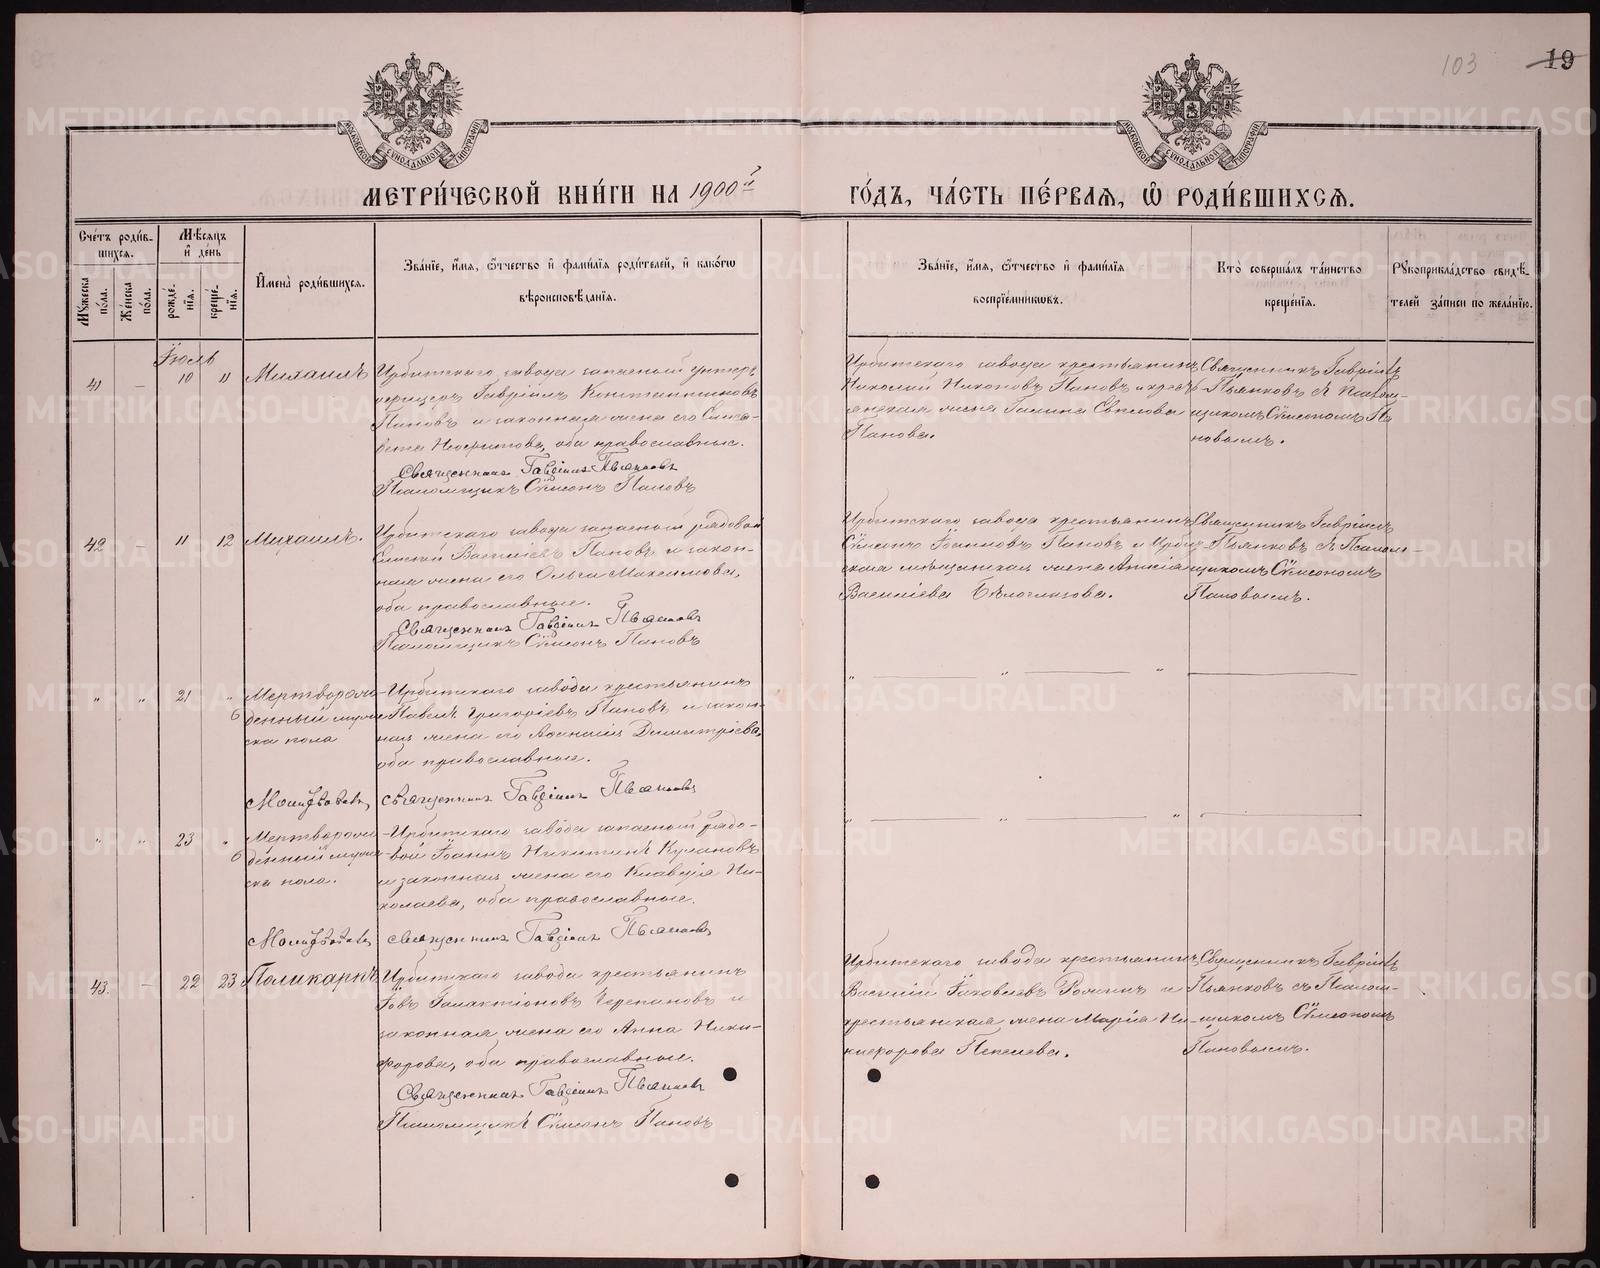 103 19
МОСКОВСКОЙ СѴНОДАЛЬНОЙ ТИПОГРАФІИ
МОСКОВСКОЙ СѴНОДАЛЬНОЙ ТИПОГРАФІИ
МЕТРИ́ЧЕСКОЙ КНИ́ГИ НА 1900й
ГО́ДЪ, ЧА́СТЬ ПЕ́РВАѦ, Ѡ҆ РОДИ́ВШИХСѦ.
Сче́тъ роди́вшихся.
Мѣ́сяцъ и҆ де́нь
Мꙋ́жеска по́ла.
Же́нска по́ла.
рожде́нїя.
креще́нїя.
И҆мена̀ роди́вшихся.
Зва́нїе, и҆́мя, ѻ҆́тчество и҆ фами́лїя роди́телей, и҆ како́гѡ
вѣроисповѣ́данїя.
Зва́нїе, и҆́мя, ѻ҆́тчество и҆ фами́лїя
воспрїе́мникѡвъ.
Кто̀ соверша́лъ та́инство
креще́нїя.
Рꙋкоприкла́дство свидѣ́-
телей за́писи по жела́нїю.
Іюль
41 – 10 11 Михаилъ
Ирбитскаго завода запасный унтеръ
офицеръ Гавріилъ Константиновъ
Пановъ и законная жена его Елиса-
вета Неофитова, оба православные.
Священникъ Гавріилъ Пьянковъ
Псаломщикъ Сѵмеонъ Пановъ
Ирбитскаго завода крестьянинъ
Николай Никоновъ Пановъ и кресть-
янская жена Галина
Панова.
Священникъ Гавріилъ
Пьянковъ съ Псалом-
щикомъ Сѵмеономъ Па-
новымъ.
42 – 11 12 Михаилъ.
Ирбитскаго завода запасный рядовой
Василіевъ Пановъ и закон-
ная жена его Ольга Максимова,
оба православные.
Священникъ Гавріилъ Пьянковъ
Псаломщикъ Сѵмеонъ Пановъ
Ирбитскаго завода крестьянинъ
Сѵмеонъ Іоанновъ Пановъ и Ирбит-
ская мѣщанская жена
Василіева Бѣлоглазова.
Священникъ Гавріилъ
Пьянковъ съ Псалом-
щикомъ Сѵмеономъ
Пановымъ.
" " 21 "
Мертворож-
денный муже-
ска пола
Ирбитскаго завода крестьянинъ
Павелъ Григоріевъ Пановъ и закон-
ная жена его Димитріева,
оба православные.
Молитвовалъ, священникъ Гавріилъ Пьянковъ
" " 23 "
Мертворож-
денный муже-
ска пола.
Ирбитскаго завода запасный рядо-
вой Іоаннъ Никитинъ
и законная жена его Клавдія Ни-
колаева, оба православные.
Молитвовалъ священникъ Гавріилъ Пьянковъ
43. – 22 23 Поликарпъ
Ирбитскаго завода крестьянинъ
Іовъ Галактіоновъ Черепановъ и
законная жена его Анна Ники-
форова, оба православные.
Священникъ Гавріилъ Пьянковъ
Псаломщикъ Сѵмеонъ Пановъ
Ирбитскаго завода крестьянинъ
Василій Іаковлевъ и
крестьянская жена Марія Ни-
кифорова Пепелева.
Священникъ Гавріилъ
Пьянковъ съ Псалом-
щикомъ Сѵмеономъ
Пановымъ.
METRIKI.GASO-URAL.RU